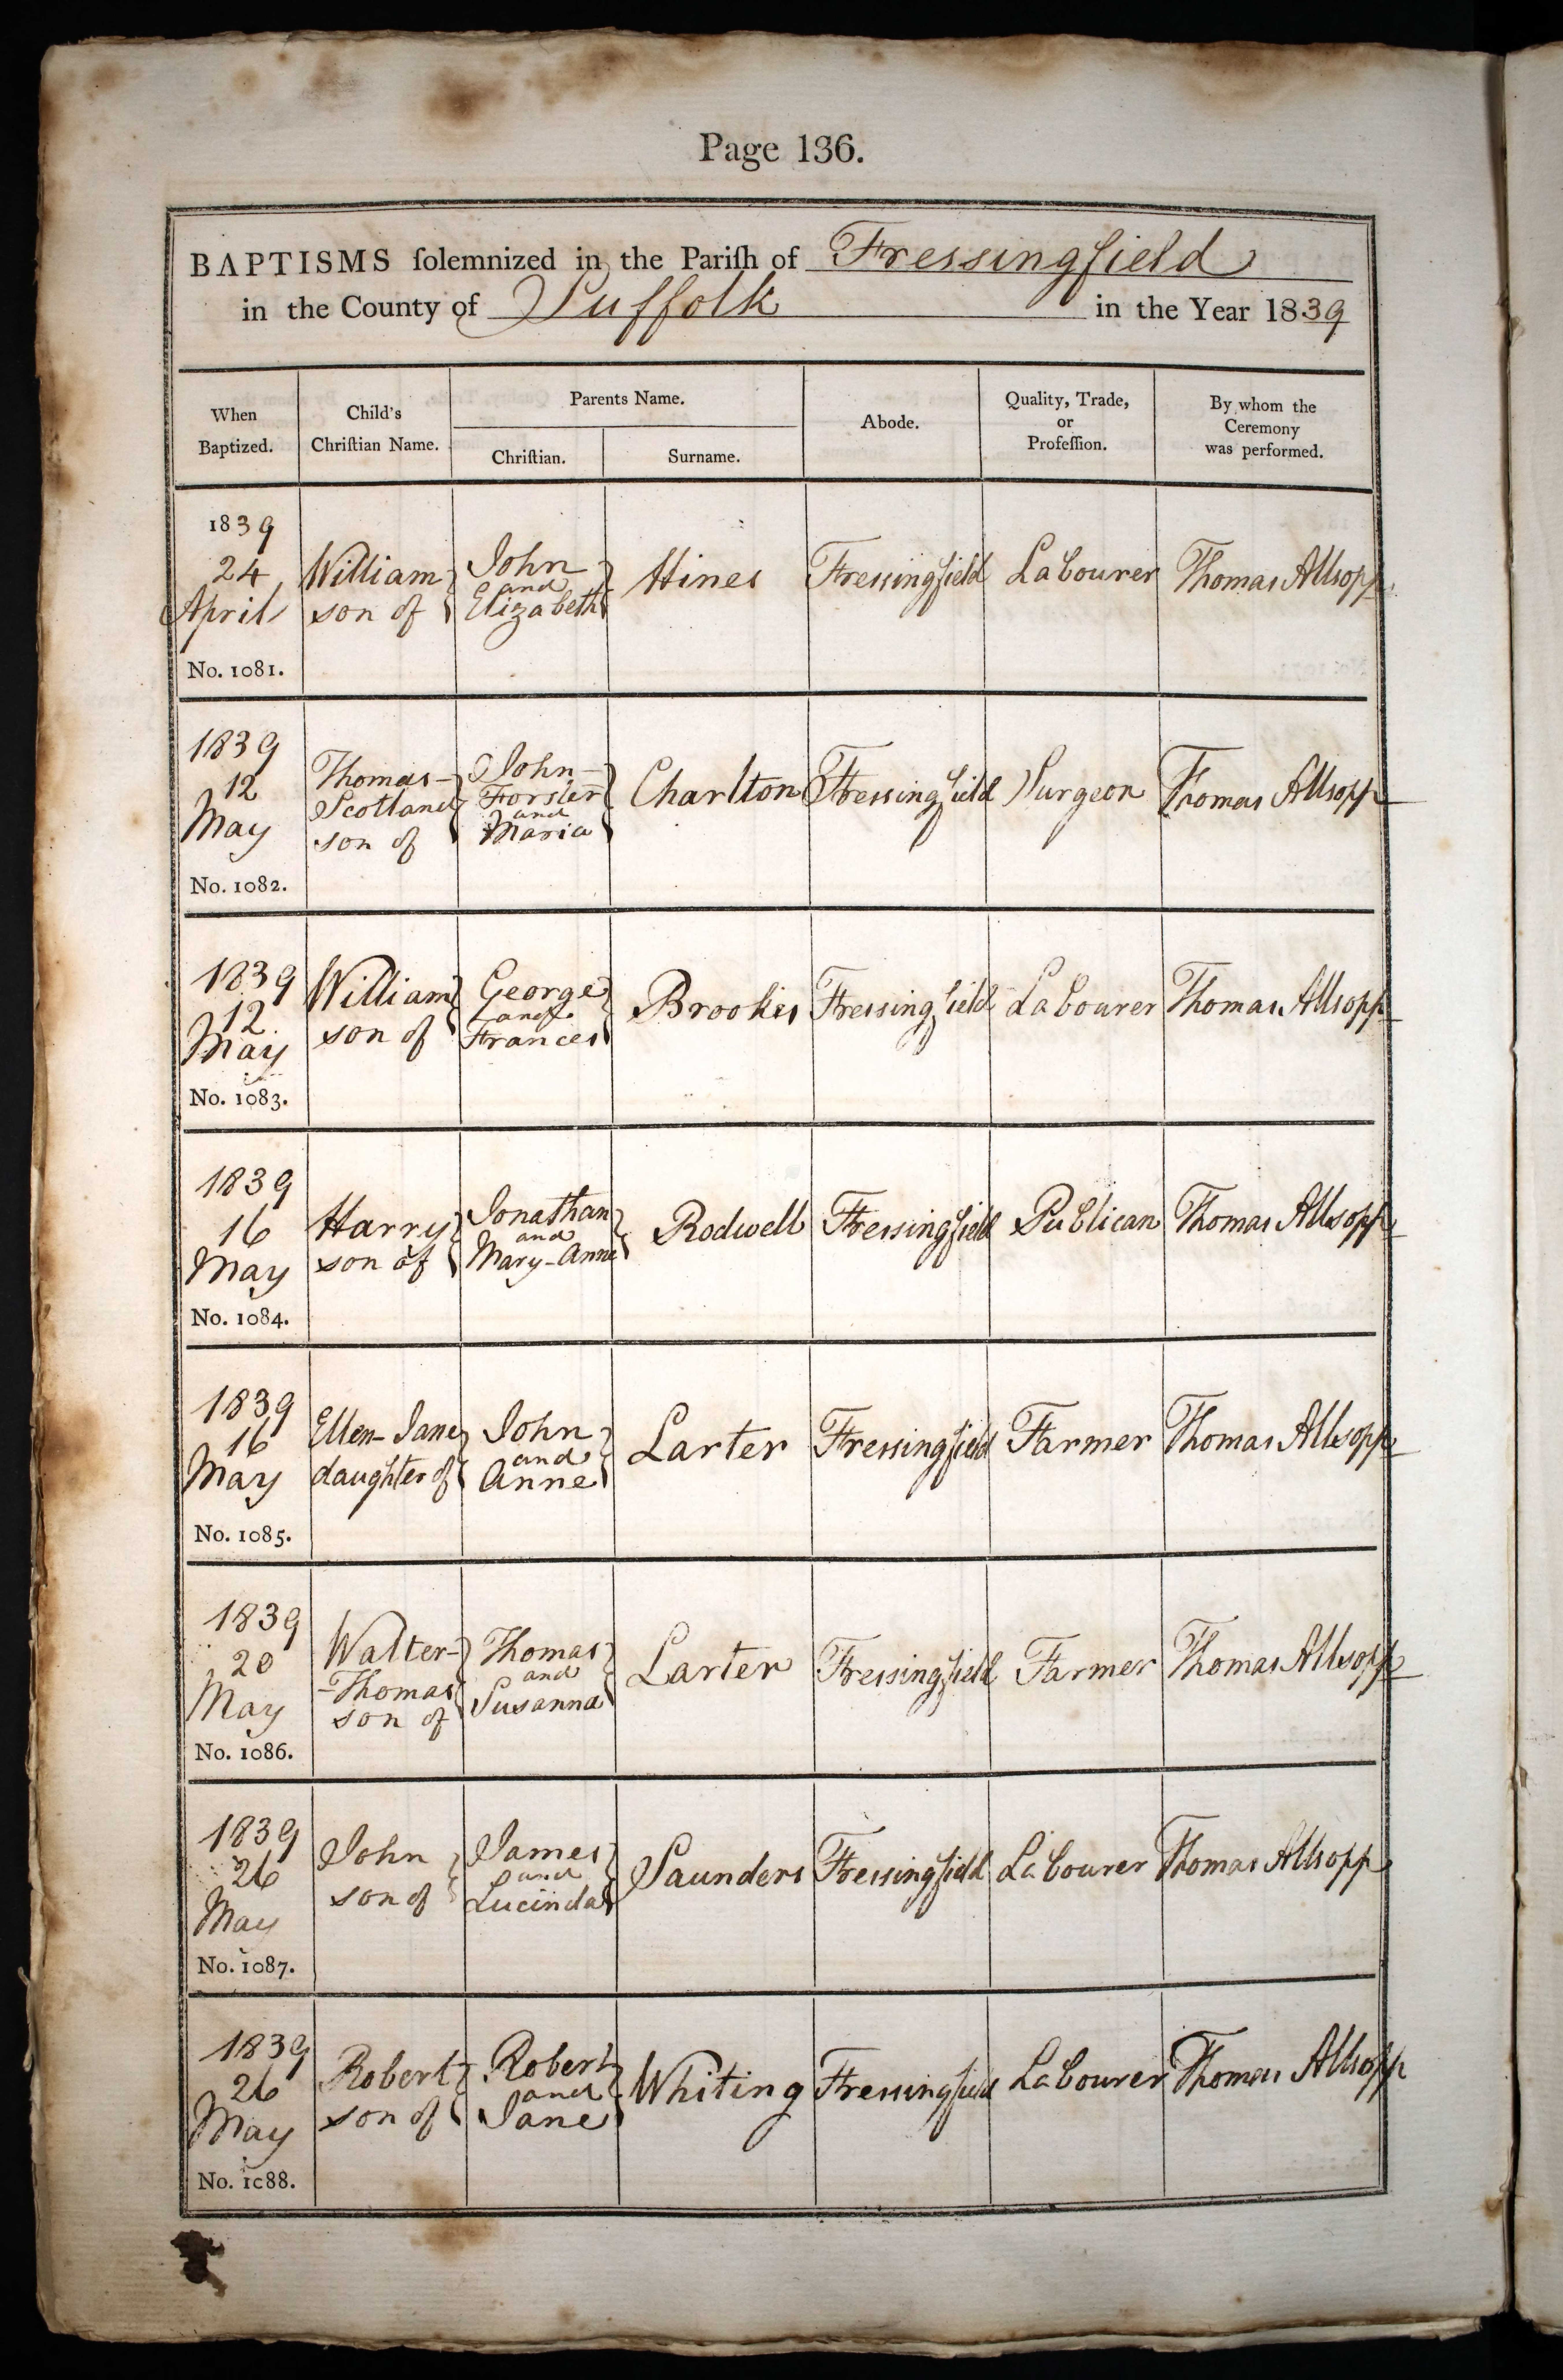 Page 136.
BAPTISMS ſolemnized in the Pariſh of Fressingfield
in the County of Suffolk in the Year 1839
When
Baptized.
Child's
Chriſtian Name.
Parents Name.
Chriſtian.
Surname.
Abode.
Quality, Trade,
or
Profeſſion.
By whom the
Ceremony
was performed.
1839
24
April
No. 1081.
William
son of
John
and
Elizabeth
Hines
Fressingfield
Labourer
Thomas Allsopp
1839
12
May
No. 1082.
Thomas-
Scotland
son of
John-
Forster
and
Maria
Charlton
Fressingfield
Surgeon
Thomas Allsopp
1839
12
May
No. 1083.
William
son of
George
and
Frances
Brookes
Fressingfield
Labourer
Thomas Allsopp
1839
16
May
No. 1084.
Harry
son of
Jonathan
and
Mary-Anne
Rodwell
Fressingfield
Publican
Thomas Allsopp
1839
16
May
No. 1085.
Ellen-Jane
daughter of
John
and
Anne
Larter
Fressingfield
Farmer
Thomas Allsopp
1839
20
May
No. 1086.
Walter-
-Thomas
son of
Thomas
and
Susanna
Larter
Fressingfield
Farmer
Thomas Allsopp
1839
26
May
No. 1087.
John
son of
James
and
Lucinda
Saunders
Fressingfield
Labourer
Thomas Allsopp
1839
26
May
No. 1088.
Robert
son of
Robert
and
Jane
Whiting
Fressingfield
Labourer
Thomas Allsopp